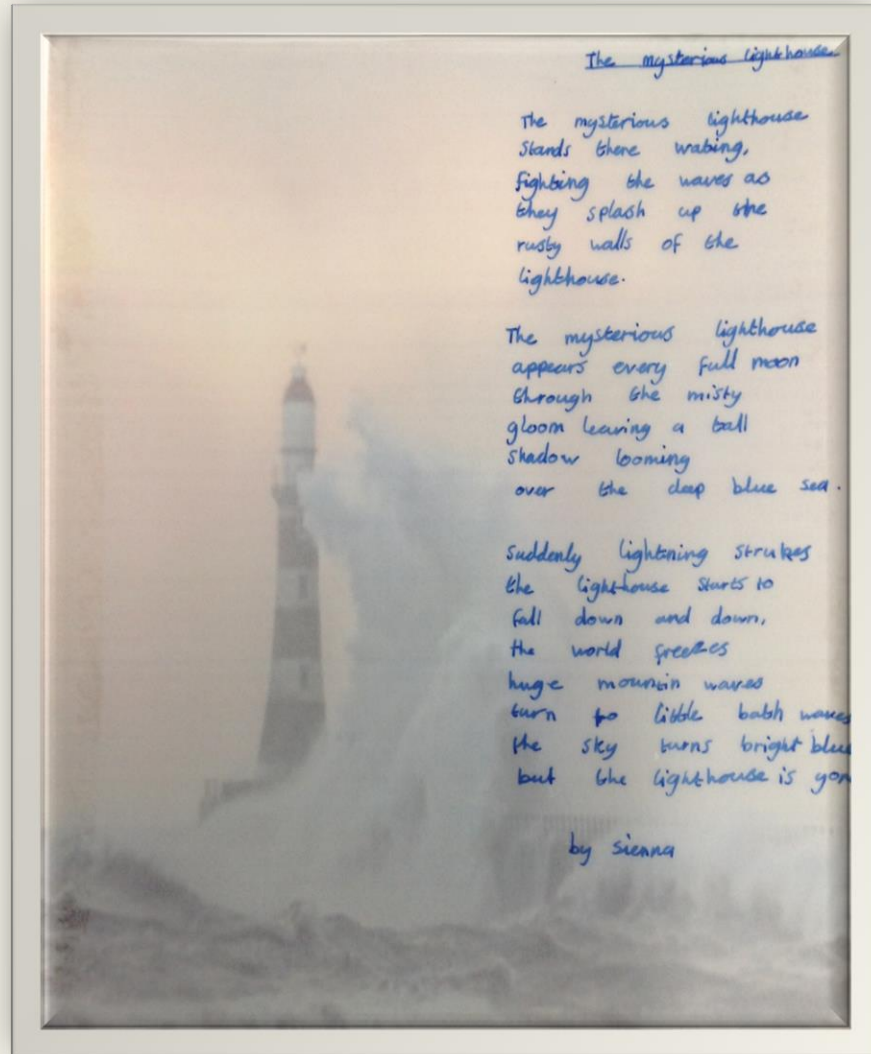 The mysterious lighthouse
The mysterious lighthouse
Stands there wating,
fighting the waves as
they splash up the
rusty walls of the
lighthouse.
The mysterious lighthouse
appears every full moon
through the misty
gloom leaving a tall
shadow looming
over the deep blue sea.
Suddenly lightning strukes
the lighthouse starts to
fall down and down,
the world freezes
huge mountin waves
turn to little bath waves
the sky turns bright blue
but the lighthouse is
by sienna